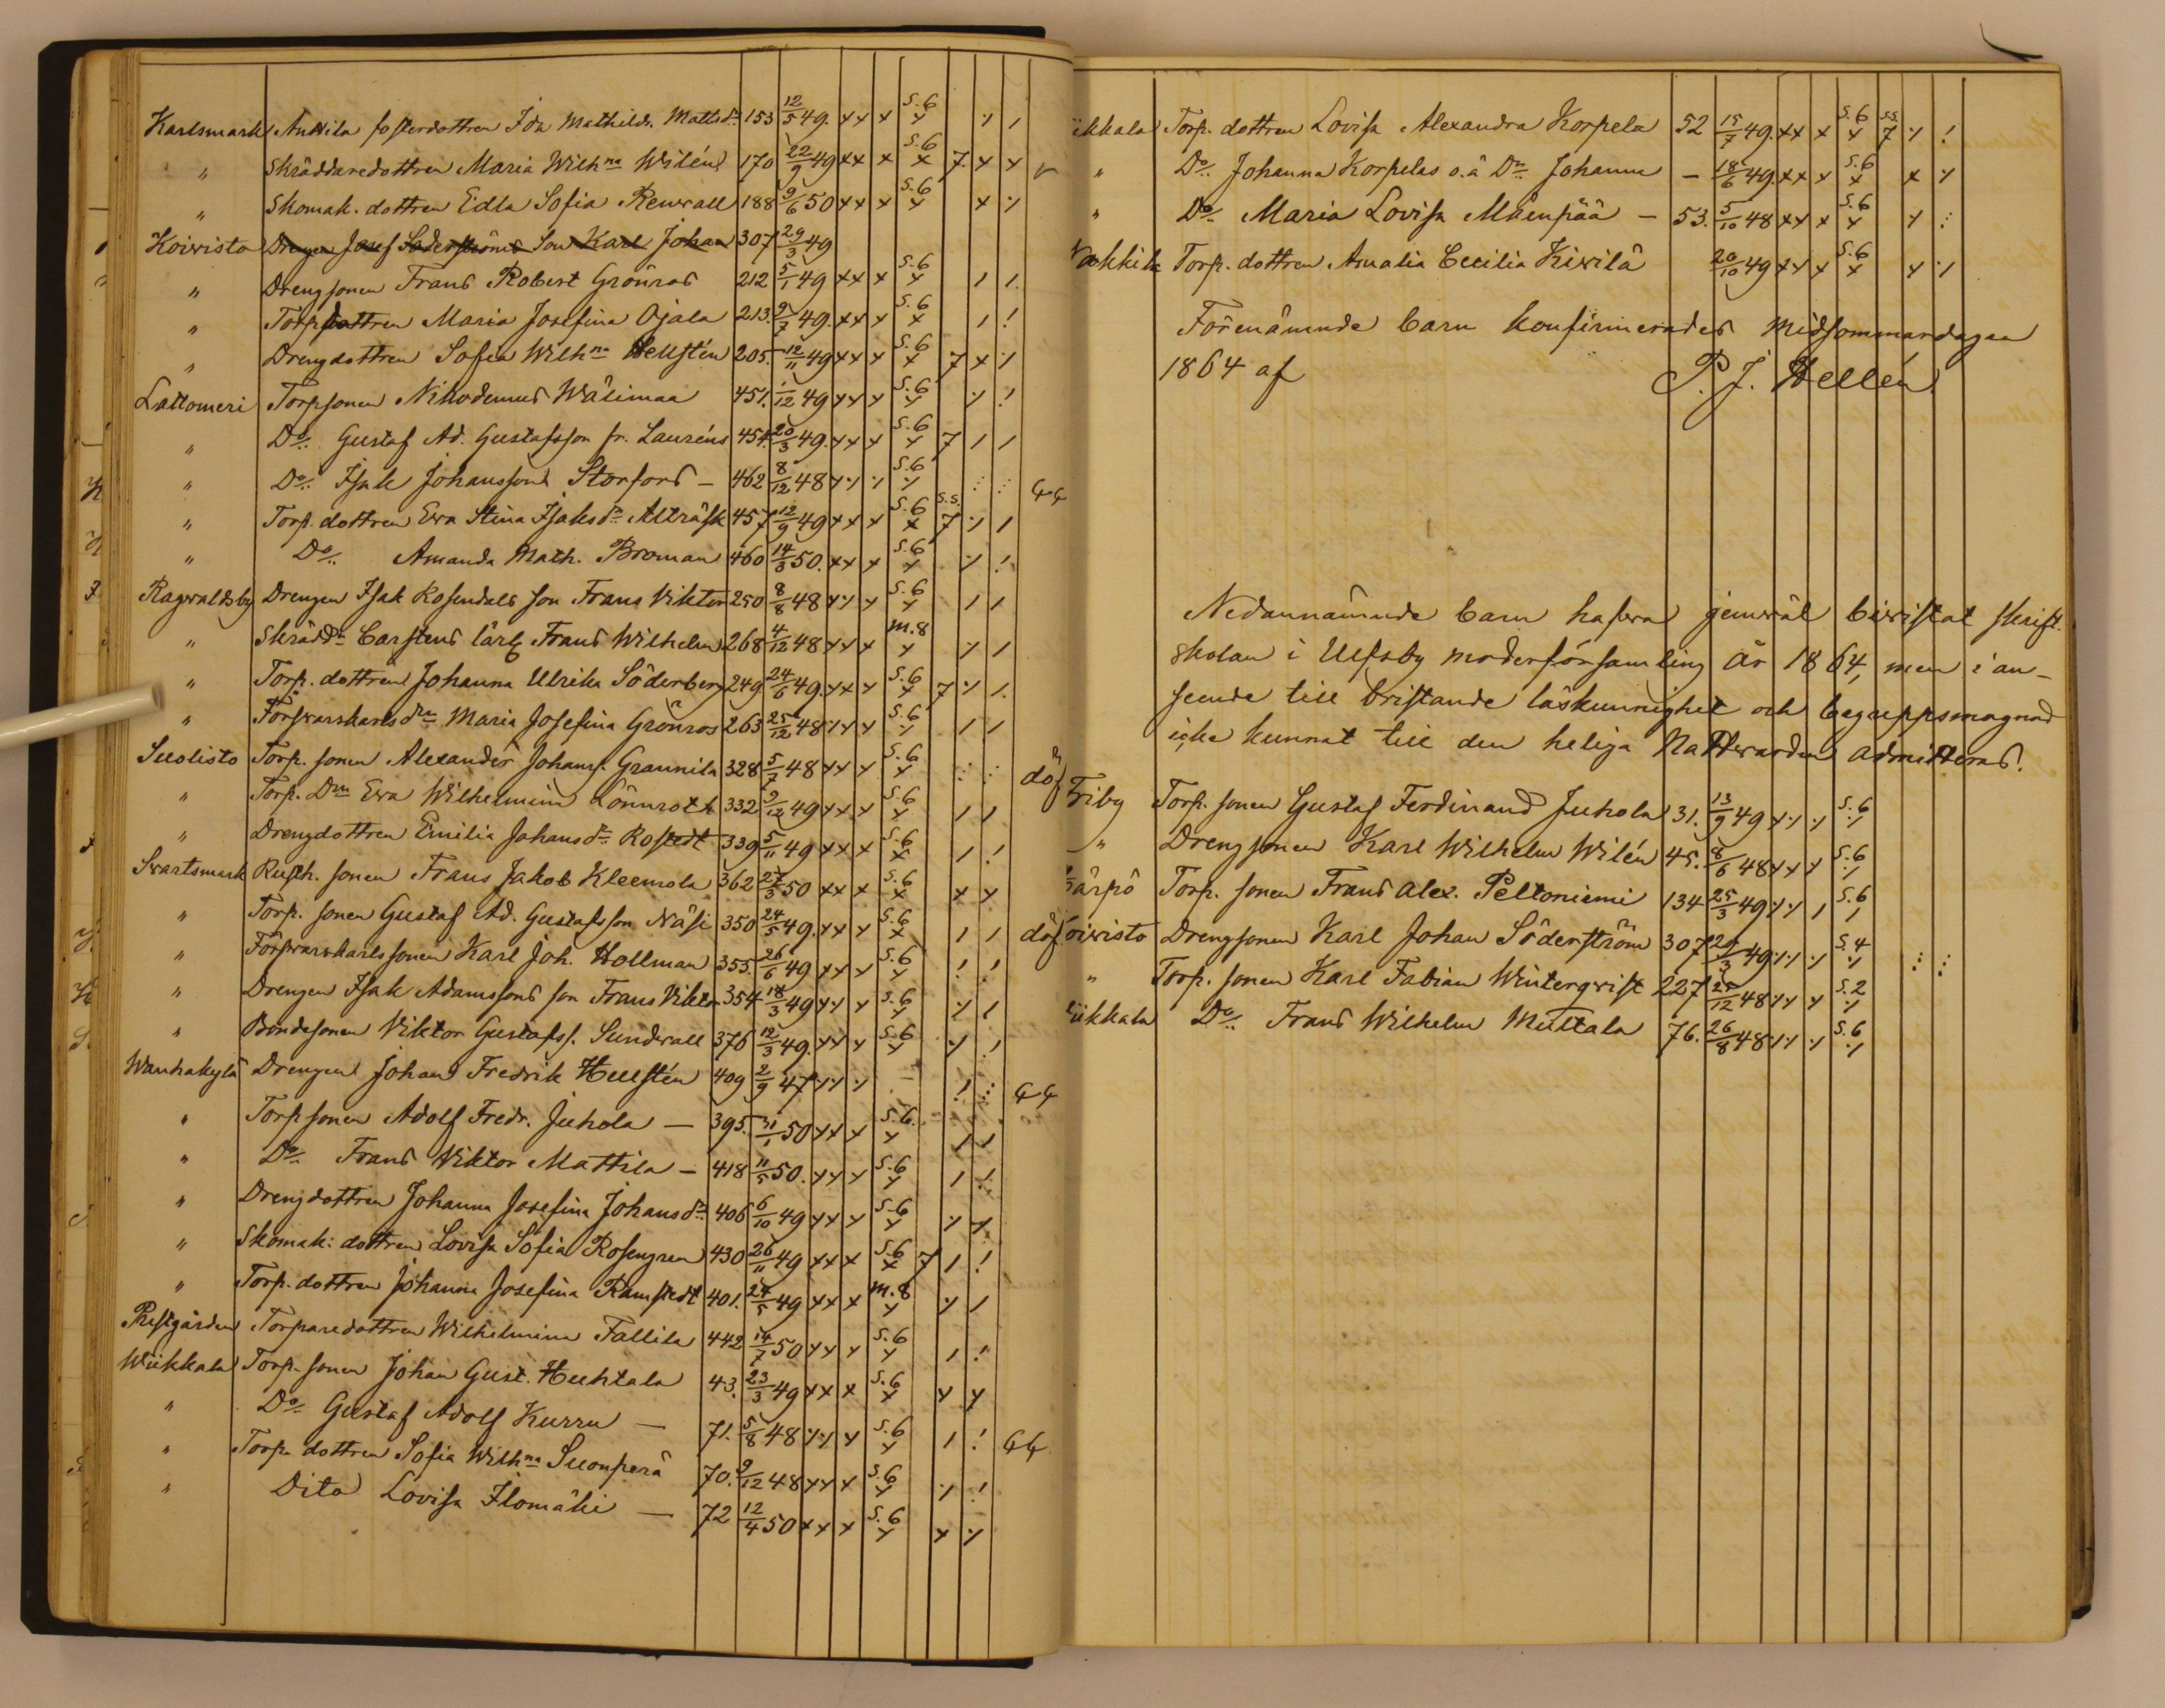 Karlsmark Anttila fosterdottren Ida Mathild. Mattsdr 153 12/5 49. x x x S.6 x ⁒ /
" Skräddaredottren Maria Wilhna Wilén 170 22/9 49 x x x S.6 x 7 x x
" Skomak. dottren Edla Sofia Renvall 188 9/6 50 x x x S.6 x x ⁒
Koivisto Drengen Josef Söderströms Son Karl Johan 307 29/3 49
" Drengsonen Frans Robert Grönroos 212 5/1 49 x x x S.6 x / /.
" Torpdottren Maria Josefina Ojala 213. 9/7 49. x x x S.6 x / !
" Drengdottren Sofia Wilhna Hellstén 205. 12/11 49 x x x S.6 x 7 x ⁒
Lattomeri Torpsonen Nikodemus Wälimaa 451. 1/12 49 x x x S.6 x ⁒ !
" Do Gustaf Ad. Gustafsson fr. Lauréns 454. 20/3 49. x x x S.6 x 7 / /
" Do Isak Johansson Storfors – 462 8/12 48 x ⁒ ⁒ S.6 ⁒ : :
" Torp. dottren Eva Stina Isaksdr Alträsk 457 12/9 49 x x x S.6 x S.S. 7 ⁒ /
" Do Amanda Math. Broman 460 14/3 50. x x x S.6 x ⁒ !
Ragvaldsby Drengen Isak Rosendals son Frans Viktor 250 8/8 48 x ⁒ x S.6 x / /
" Skrädd. Carstens lärl. Frans Wilhelm 268 4/12 48 x x x M.8 x ⁒ /
" Torp. dottren Johanna Ulrika Söderberg 249 24/6 49. x x x S.6 x 7 ⁒ /.
" Förswarskarls dra Maria Josefina Grönroos 263 25/12 48 ⁒ x x S.6 ⁒ / /
Suolisto Torp. sonen Alexander Johanss. Grannila 328 5/7 48 x x x S.6 x : : döf
" Torp. Drn Eva Wilhelmina Lönnroth 332 9/12 49 x x x S.6 x / /
" Drengdottren Emilia Johansdr Rostedt 339 5/11 49 x x x S.6 x / !
Svartsmark Rusth. sonen Frans Jakob Kleemola 362 27/3 50 x x x S.6 x x x
" Torp. sonen Gustaf Ad. Gustafsson Näsi 350 24/5 49. x x x S.6 x / / döf
" Förswarskarlssonen Karl Joh. Hollman 355. 26/6 49 x x x S.6 x ! !
" Drengen Isak Adamssons son Frans Viktor 354 18/3 49 x x x S.6 x ⁒ /
" Bondesonen Viktor Gustafss. Sundvall 376 12/3 49. x x x S.6 x ⁒ !
Wanhakylä Drengen Johan Fredrik Hellstén 409 2/9 47 ⁒ ⁒ ⁒ – ! :
" Torpsonen Adolf Fredr. Juhola – 395. 31/1 50 x x x S.6. x / /
" Do Frans Viktor Mattila – 418 11/5 50. x x x S.6 x / !
" Drengdottren Johanna Josefina Johansdr 406 6/10 49 x x x S.6 x ⁒ ⁒
" Skomak: dottren Lovisa Sofia Rosengren 430 26/11 49 x x x S.6 x 7 / !
" Torp. dottren Johanna Josefina Ramstedt 401. 24/5 49 x x x M.8 x ⁒ /
Prestgården Torparedottren Wilhelmina Tallila 442 14/7 50 x x x S.6 x / !
Wiikkala Torp. sonen Johan Gust. Huhtala 43. 23/3 49 x x x S.6 x x x
" Do Gustaf Adolf Kurru – 71. 5/8 48 ⁒ ⁒ x S.6 x / !
" Torp. dottren Sofia Wilhna Suonperä 70. 9/12 48 x x x S.6 x ⁒ !
" Dito Lovisa Ilomäki – 72 12/4 50 x x x S.6 x x ⁒
iikkala Torp. dottren Lovisa Alexandra Korpela 52 15/7 49. x x x S.6 x S.S 7 ⁒ !
" Do Johanna Korpelas o.ä Drn Johanna – 18/6 49. x x x S.6 x x ⁒
" Do Maria Lovisa Mäenpää – 53. 5/10 48 x x x S.6 x ⁒ :
Torp. dottren Amalia Cecilia Kivilä 20/10 49 x x x S.6 x x ⁒
Förenämnde barn konfirmerades Midsommardagen
1864 af P. J. Hellén
Nedannämnde barn hafva jemväl bivistat skrift-
skolan i Ulfsby moderförsamling år 1864, men i an-
seende till bristande läskunnighet och begreppsmognad
icke kunnat till den heliga Nattvarden admitteras.
Friby Torp. sonen Gustaf Ferdinand Juhola 31. 13/9 49 x ⁒ ⁒ S.6 ⁒
" Drengsonen Karl Wilhelm Wilén 45. 8/6 48 x x x S.6 ⁒
ärpö Torp. sonen Frans Alex. Peltoniemi 134 25/3 49 ⁒ ⁒ / S.6 /
oivisto Drengsonen Karl Johan Söderström 307 29/3 49 ⁒ ⁒ ⁒ S.4 ⁒ : :
" Torp. sonen Karl Fabian Winterqvist 227 25/12 48 ⁒ x x S.2 ⁒
iikkala Do Frans Wilhelm Muttala 76. 26/8 48 ⁒ ⁒ ⁒ S.6 ⁒